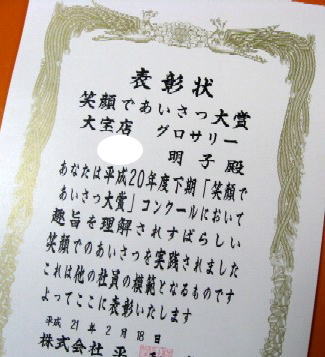 表彰状
笑顔であいさつ大賞
大宝店 グロサリー
明子殿
あなたは平成20年度下期「笑顔で
あいさつ大賞」コンクールにおいて
趣旨を理解されすばらしい
笑顔でのあいさつを実践されました
これは他の社員の模範となるものです
よってここに表彰いたします
平成 21 年 2 月 18 日
株式会社 平